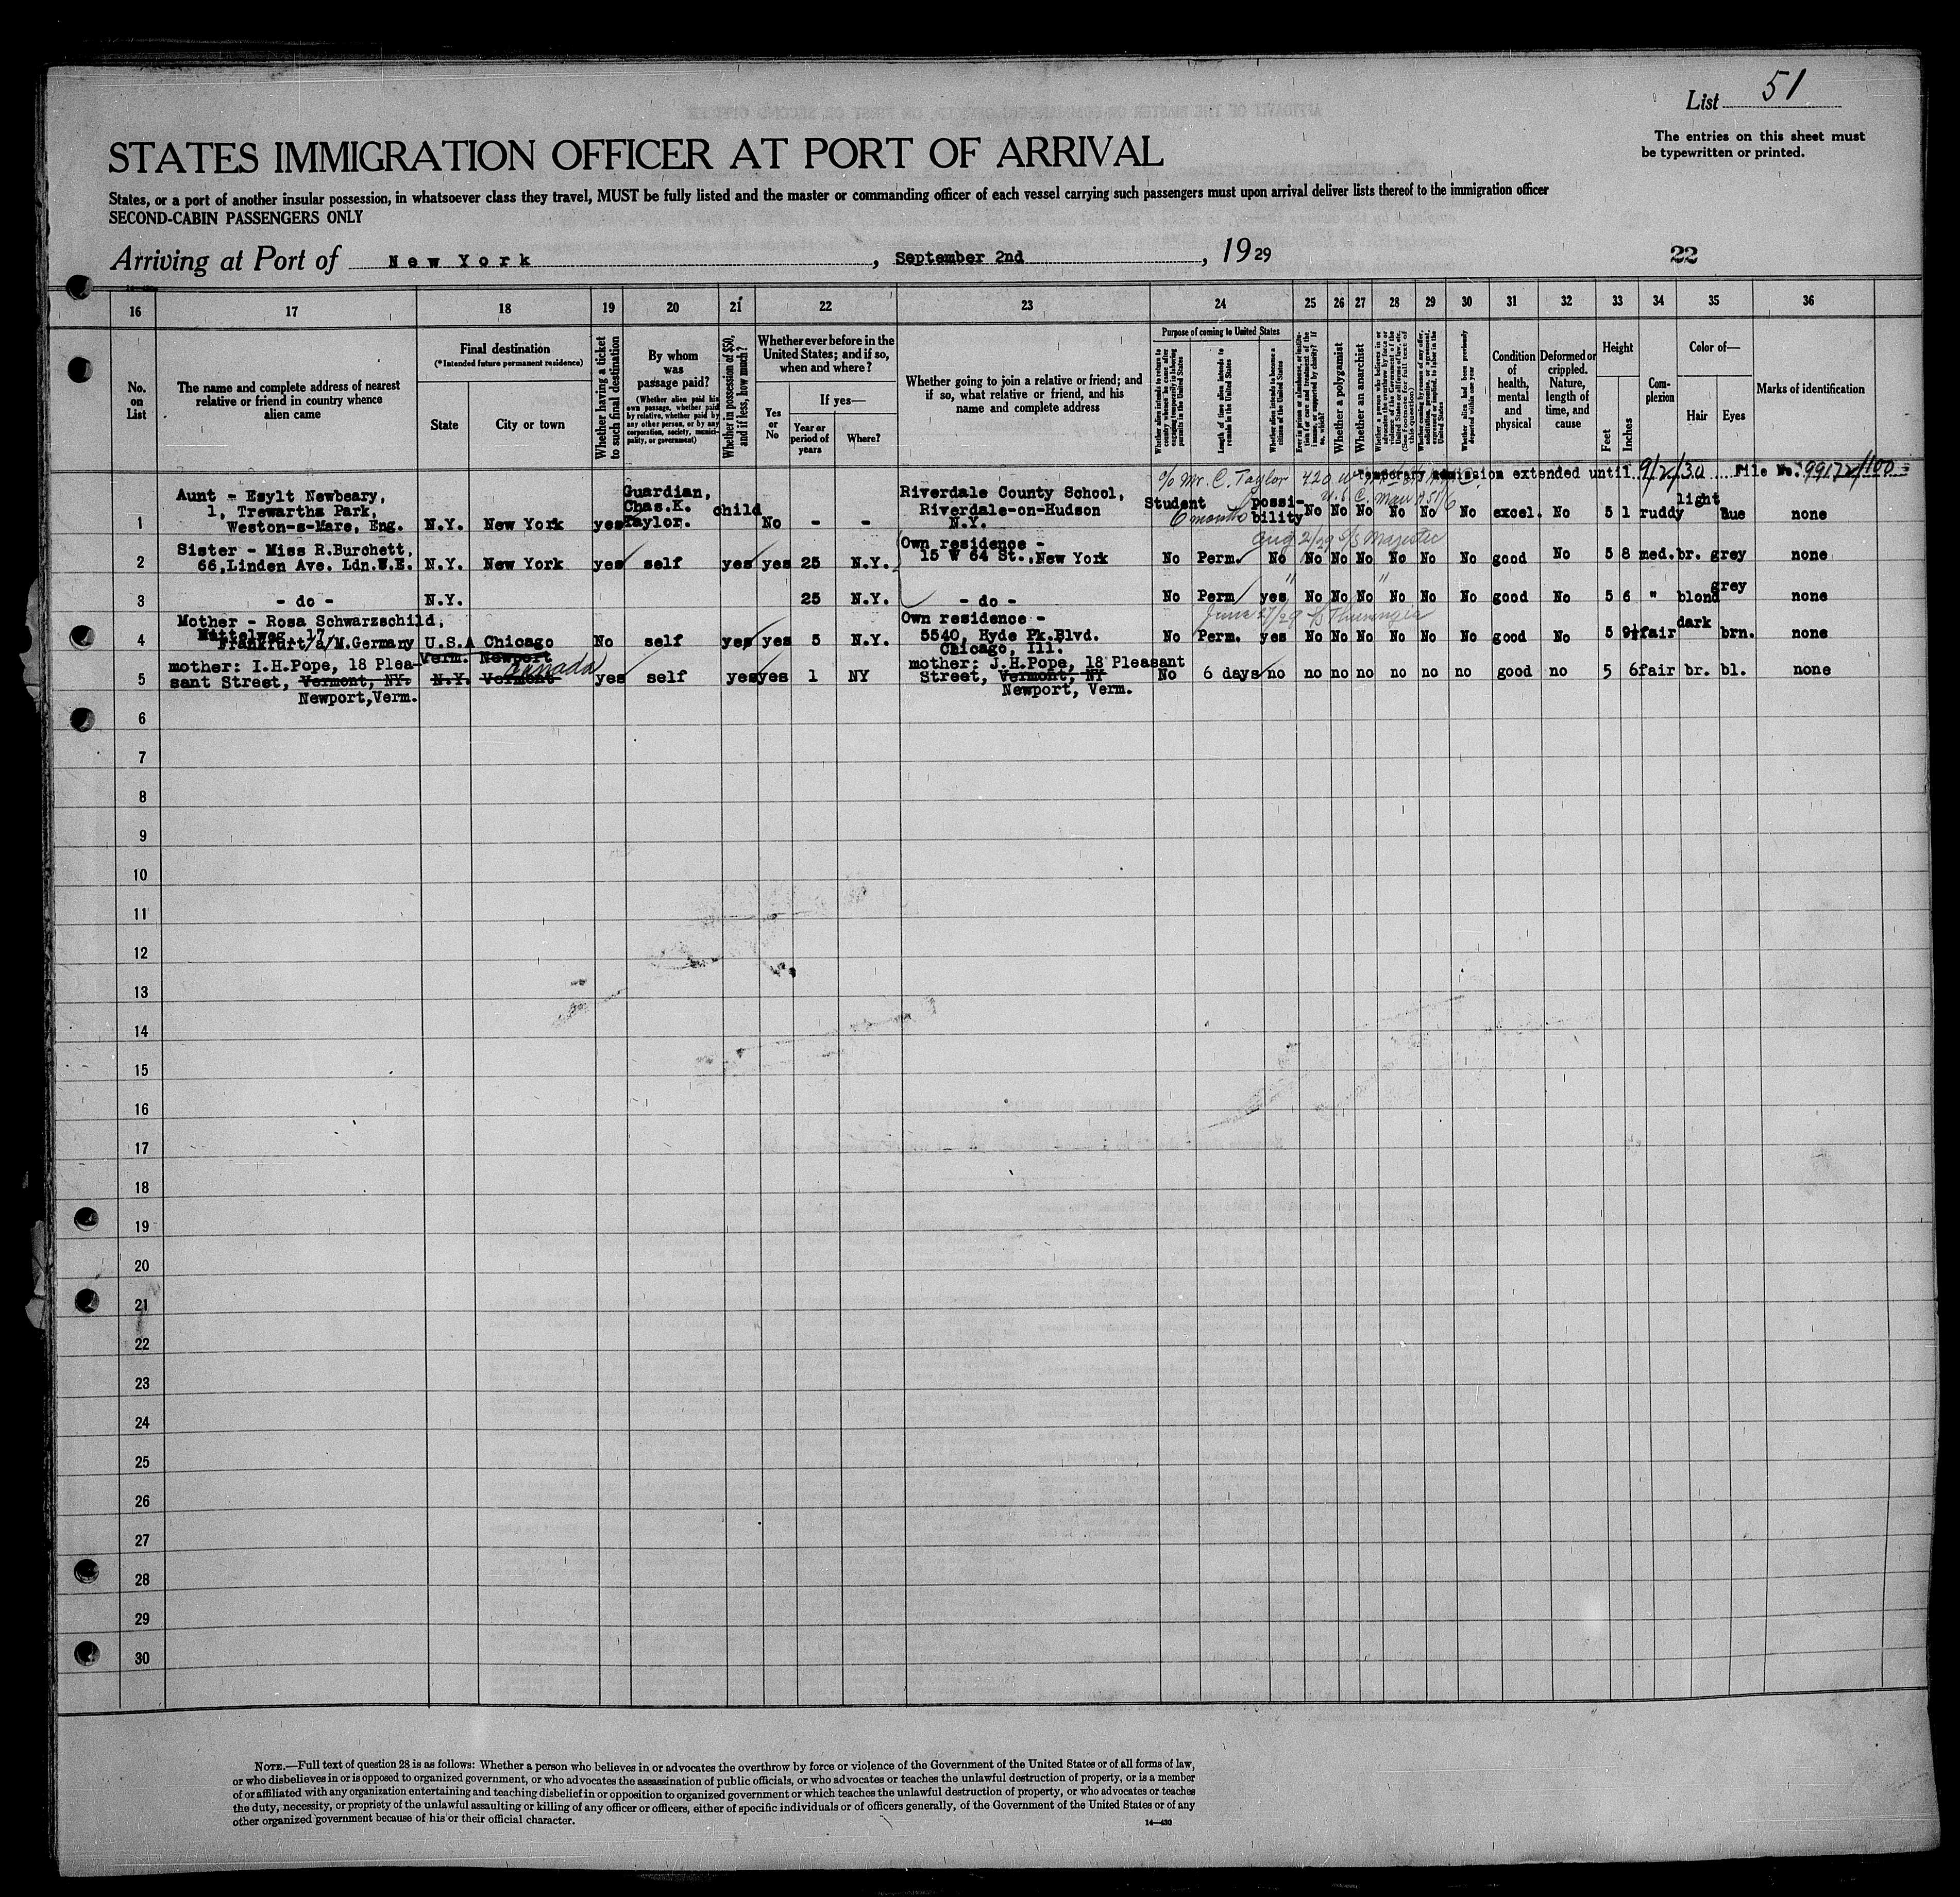 List 51
The entries on this sheet must
be typewritten or printed.
STATES IMMIGRATION OFFICER AT PORT OF ARRIVAL
States, or a port of another insular possession, in whatsoever class they travel, MUST be fully listed and the master or commanding officer of each vessel carrying such passengers must upon arrival deliver lists thereof to the immigration officer
SECOND-CABIN PASSENGERS ONLY
Arriving at Port of New York, September 2nd, 1929
22
16 17 18 19 20 21 22 23 24 25 26 27 28 29 30 31 32 33 34 35 36
No. on List
The name and complete address of nearest relative or friend in country whence alien came
Final destination
(*Intended future permanent residence)
State
City or town
Whether having a ticket to such final destination
By whom was passage paid?
(Whether alien paid his own passage, whether paid by relative, whether paid by any other person, or by any corporation, society, municipality, or government)
Whether in possession of $50, and if less, how much?
Whether ever before in the United States; and if so, when and where?
Yes or No
If yes—
Year or period of years
Where?
Whether going to join a relative or friend; and if so, what relative or friend, and his name and complete address
Purpose of coming to United States
Length of time alien intends to remain in the United States
Whether alien intends to become a citizen of the United States
Whether a polygamist
Whether an anarchist
Whether alien had been previously deported within one year
Condition of health, mental and physical
Deformed or crippled. Nature, length of time, and cause
Height
Feet
Inches
Complexion
Color of—
Hair
Eyes
Marks of identification
c/o Mr. C. Taylor 420 Temporary admission extended until 9/2/30 File No. 99172/100
1 Aunt - Esylt Newbeary, 1, Trewartha Park, Weston-s-Mare, Eng. N.Y. New York yes Guardian, Chas.K. Taylor. child No - - Riverdale County School, Riverdale-on-Hudson N.Y. Student 6 months possibility No No No No No No excel. No 5 1 ruddy light blue none
Aug 21/29 S/S Majestic
2 Sister - Miss R.Burchett, 66,Linden Ave. Ldn.W.E. N.Y. New York yes self yes yes 25 N.Y. Own residence - 15 W 64 St., New York No Perm. No No No No No No No good No 5 8 med. br. grey none
" "
3 - do - N.Y. 25 N.Y. - do - No Perm yes No No No No No No good No 5 6 " blond grey none
June 27/29 S/S Thuringia
4 Mother - Rosa Schwarzschild, Mittelweg 17, Frankfurt/a/M.Germany U.S.A Chicago No self yes yes 5 N.Y. Own residence - 5540, Hyde Pk.Blvd. Chicago, Ill. No Perm. yes No No No No No No good No 5 9½ fair dark brn. none
5 mother: I.H.Pope, 18 Pleasant Street, Vermont, NY. Newport,Verm. Verm. Newport N.Y. Vermont Canada yes self yes yes 1 NY mother: J.H.Pope, 18 Pleasant Street, Vermont, NY Newport, Verm. No 6 days no no no no no no no good no 5 6 fair br. bl. none
6
7
8
9
10
11
12
13
14
15
16
17
18
19
20
21
22
23
24
25
26
27
28
29
30
NOTE.—Full text of question 28 is as follows: Whether a person who believes in or advocates the overthrow by force or violence of the Government of the United States or of all forms of law,
or who disbelieves in or is opposed to organized government, or who advocates the assassination of public officials, or who advocates or teaches the unlawful destruction of property, or is a member
of or affiliated with any organization entertaining and teaching disbelief in or opposition to organized government or which teaches the unlawful destruction of property, or who advocates or teaches
the duty, necessity, or propriety of the unlawful assaulting or killing of any officer or officers, either of specific individuals or of officers generally, of the Government of the United States or of any
other organized government because of his or their official character.
14—430